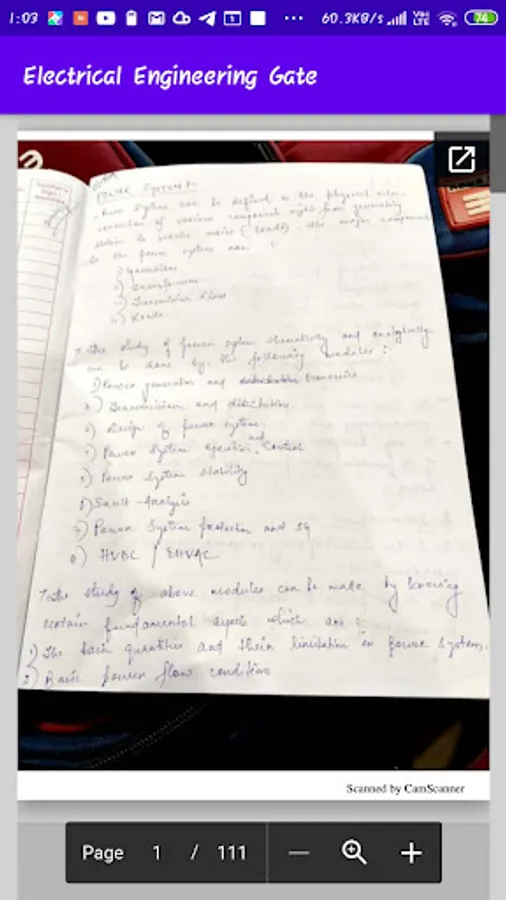 1:03
60.3KB/s
74
Electrical Engineering Gate
Power System
Power System can be defined as the physical
of various component right from generating
station to (Loads). The major component
in the power system are :-
1) Generators
2) Transformers
3) Transmission Lines
4) Loads.
The study of power system theoretically and analytically
can be done by the following modules :-
1) Power generation and Economics
2) Transmission and distribution.
3) Design of power system.
4) Power System operation and Control
5) Power System Stability
6) Fault Analysis
7) Power System protection and SG
8) HVDC / EHVAC
The study of above modules can be made by knowing
certain fundamental aspects which are :
1) The basic quantities and their limitation in power system.
2) Basic power flow conditions
Scanned by CamScanner
Page 1 / 111